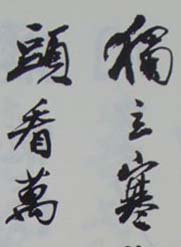 獨立塞
頭看萬